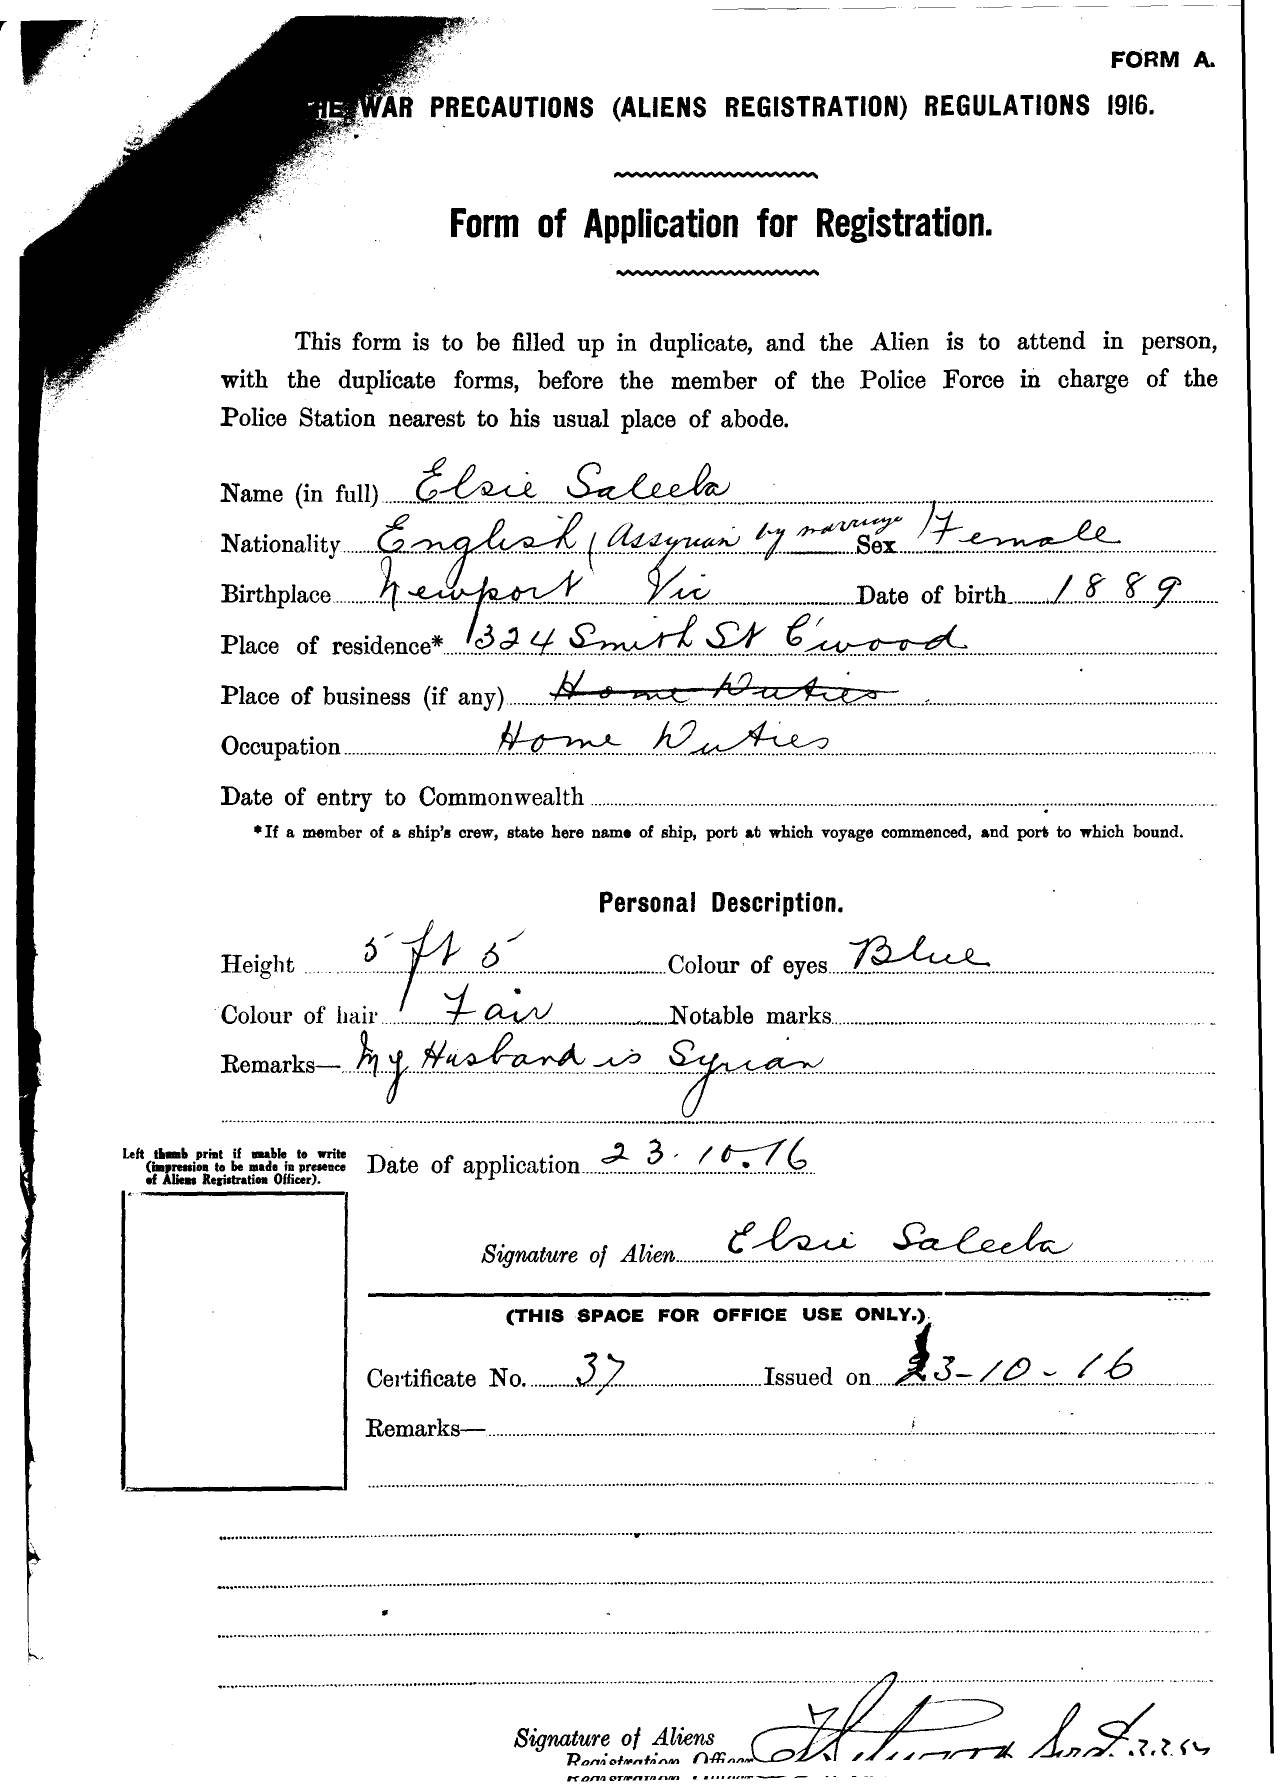 FORM A.
THE WAR PRECAUTIONS (ALIENS REGISTRATION) REGULATIONS 1916.
Form of Application for Registration.
This form is to be filled up in duplicate, and the Alien is to attend in person,
with the duplicate forms, before the member of the Police Force in charge of the
Police Station nearest to his usual place of abode.
Name (in full) Elsie Saleeba
Nationality English (Assyrian by marriage) Sex Female
Birthplace Newport Vic Date of birth 1889
Place of residence* 324 Smith St C'wood
Place of business (if any) Home Duties
Occupation Home Duties
Date of entry to Commonwealth
*If a member of a ship's crew, state here name of ship, port at which voyage commenced, and port to which bound.
Personal Description.
Height 5 ft 5 Colour of eyes Blue
Colour of hair Fair Notable marks
Remarks— My Husband is Syrian
Left thumb print if unable to write
(impression to be made in presence
of Aliens Registration Officer).
Date of application 23.10.16
Signature of Alien Elsie Saleeba
(THIS SPACE FOR OFFICE USE ONLY.)
Certificate No. 37 Issued on 23-10-16
Remarks—
Signature of Aliens
Registration Officer